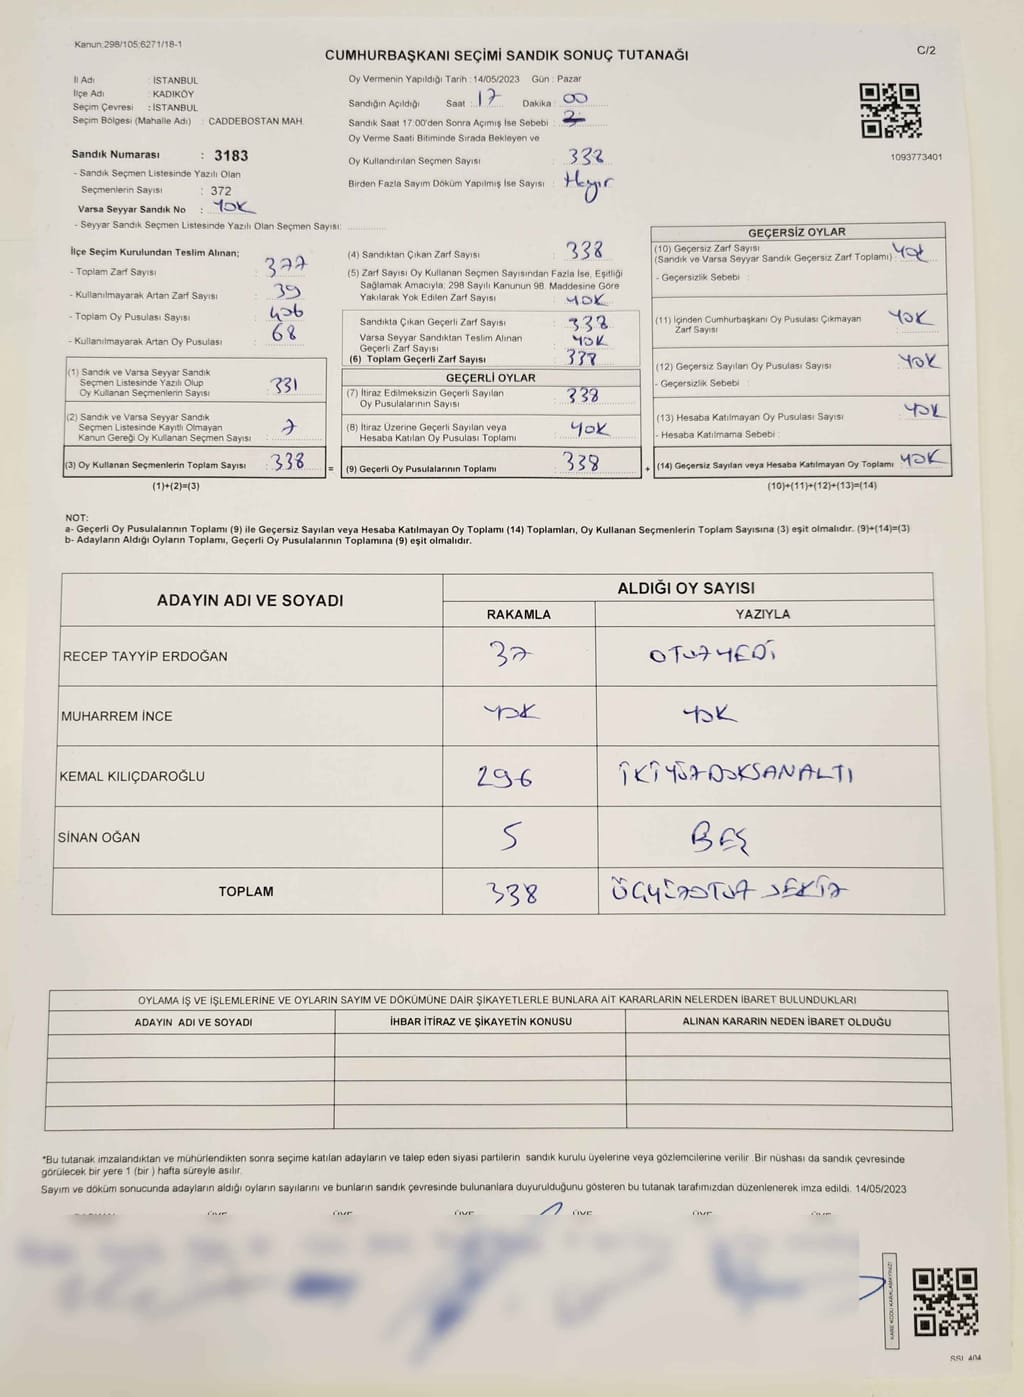 Kanun:298/105:6271/18-1
C/2
CUMHURBAŞKANI SEÇİMİ SANDIK SONUÇ TUTANAĞI
İl Adı : İSTANBUL
İlçe Adı : KADIKÖY
Seçim Çevresi : İSTANBUL
Seçim Bölgesi (Mahalle Adı) : CADDEBOSTAN MAH.
Sandık Numarası : 3183
- Sandık Seçmen Listesinde Yazılı Olan
Seçmenlerin Sayısı : 372
Varsa Seyyar Sandık No : YOK
- Seyyar Sandık Seçmen Listesinde Yazılı Olan Seçmen Sayısı:
Oy Vermenin Yapıldığı Tarih : 14/05/2023 Gün : Pazar
Sandığın Açıldığı Saat : 17 Dakika : 00
Sandık Saat 17:00'den Sonra Açımış İse Sebebi :
Oy Verme Saati Bitiminde Sırada Bekleyen ve
Oy Kullandırılan Seçmen Sayısı : 338
Birden Fazla Sayım Döküm Yapılmış İse Sayısı : Hayır
1093773401
İlçe Seçim Kurulundan Teslim Alınan;
- Toplam Zarf Sayısı : 377
- Kullanılmayarak Artan Zarf Sayısı : 39
- Toplam Oy Pusulası Sayısı : 406
- Kullanılmayarak Artan Oy Pusulası : 68
(1) Sandık ve Varsa Seyyar Sandık
Seçmen Listesinde Yazılı Olup
Oy Kullanan Seçmenlerin Sayısı : 331
(2) Sandık ve Varsa Seyyar Sandık
Seçmen Listesinde Kayıtlı Olmayan
Kanun Gereği Oy Kullanan Seçmen Sayısı : 7
(3) Oy Kullanan Seçmenlerin Toplam Sayısı : 338
(1)+(2)=(3)
(4) Sandıktan Çıkan Zarf Sayısı : 338
(5) Zarf Sayısı Oy Kullanan Seçmen Sayısından Fazla İse, Eşitliği
Sağlamak Amacıyla; 298 Sayılı Kanunun 98. Maddesine Göre
Yakılarak Yok Edilen Zarf Sayısı : YOK
Sandıkta Çıkan Geçerli Zarf Sayısı : 338
Varsa Seyyar Sandıktan Teslim Alınan
Geçerli Zarf Sayısı : YOK
(6) Toplam Geçerli Zarf Sayısı : 338
GEÇERLİ OYLAR
(7) İtiraz Edilmeksizin Geçerli Sayılan
Oy Pusulalarının Sayısı : 338
(8) İtiraz Üzerine Geçerli Sayılan veya
Hesaba Katılan Oy Pusulası Toplamı : YOK
= (9) Geçerli Oy Pusulalarının Toplamı : 338
GEÇERSİZ OYLAR
(10) Geçersiz Zarf Sayısı
(Sandık ve Varsa Seyyar Sandık Geçersiz Zarf Toplamı) : YOK
- Geçersizlik Sebebi :
(11) İçinden Cumhurbaşkanı Oy Pusulası Çıkmayan
Zarf Sayısı : YOK
(12) Geçersiz Sayılan Oy Pusulası Sayısı : YOK
- Geçersizlik Sebebi :
(13) Hesaba Katılmayan Oy Pusulası Sayısı : YOK
- Hesaba Katılmama Sebebi :
+ (14) Geçersiz Sayılan veya Hesaba Katılmayan Oy Toplamı YOK
(10)+(11)+(12)+(13)=(14)
NOT:
a- Geçerli Oy Pusulalarının Toplamı (9) ile Geçersiz Sayılan veya Hesaba Katılmayan Oy Toplamı (14) Toplamları, Oy Kullanan Seçmenlerin Toplam Sayısına (3) eşit olmalıdır. (9)+(14)=(3)
b- Adayların Aldığı Oyların Toplamı, Geçerli Oy Pusulalarının Toplamına (9) eşit olmalıdır.
ADAYIN ADI VE SOYADI ALDIĞI OY SAYISI
RAKAMLA YAZIYLA
RECEP TAYYİP ERDOĞAN 37 OTUZYEDİ
MUHARREM İNCE YOK YOK
KEMAL KILIÇDAROĞLU 296 İKİYÜZDOKSANALTI
SİNAN OĞAN 5 BEŞ
TOPLAM 338 ÜÇYÜZOTUZ SEKİZ
OYLAMA İŞ VE İŞLEMLERİNE VE OYLARIN SAYIM VE DÖKÜMÜNE DAİR ŞİKAYETLERLE BUNLARA AİT KARARLARIN NELERDEN İBARET BULUNDUKLARI
ADAYIN ADI VE SOYADI İHBAR İTİRAZ VE ŞİKAYETİN KONUSU ALINAN KARARIN NEDEN İBARET OLDUĞU
*Bu tutanak imzalandıktan ve mühürlendikten sonra seçime katılan adayların ve talep eden siyasi partilerin sandık kurulu üyelerine veya gözlemcilerine verilir. Bir nüshası da sandık çevresinde
görülecek bir yere 1 (bir ) hafta süreyle asılır.
Sayım ve döküm sonucunda adayların aldığı oyların sayılarını ve bunların sandık çevresinde bulunanlara duyurulduğunu gösteren bu tutanak tarafımızdan düzenlenerek imza edildi. 14/05/2023
KARE KODU KARALAMAYINIZ!